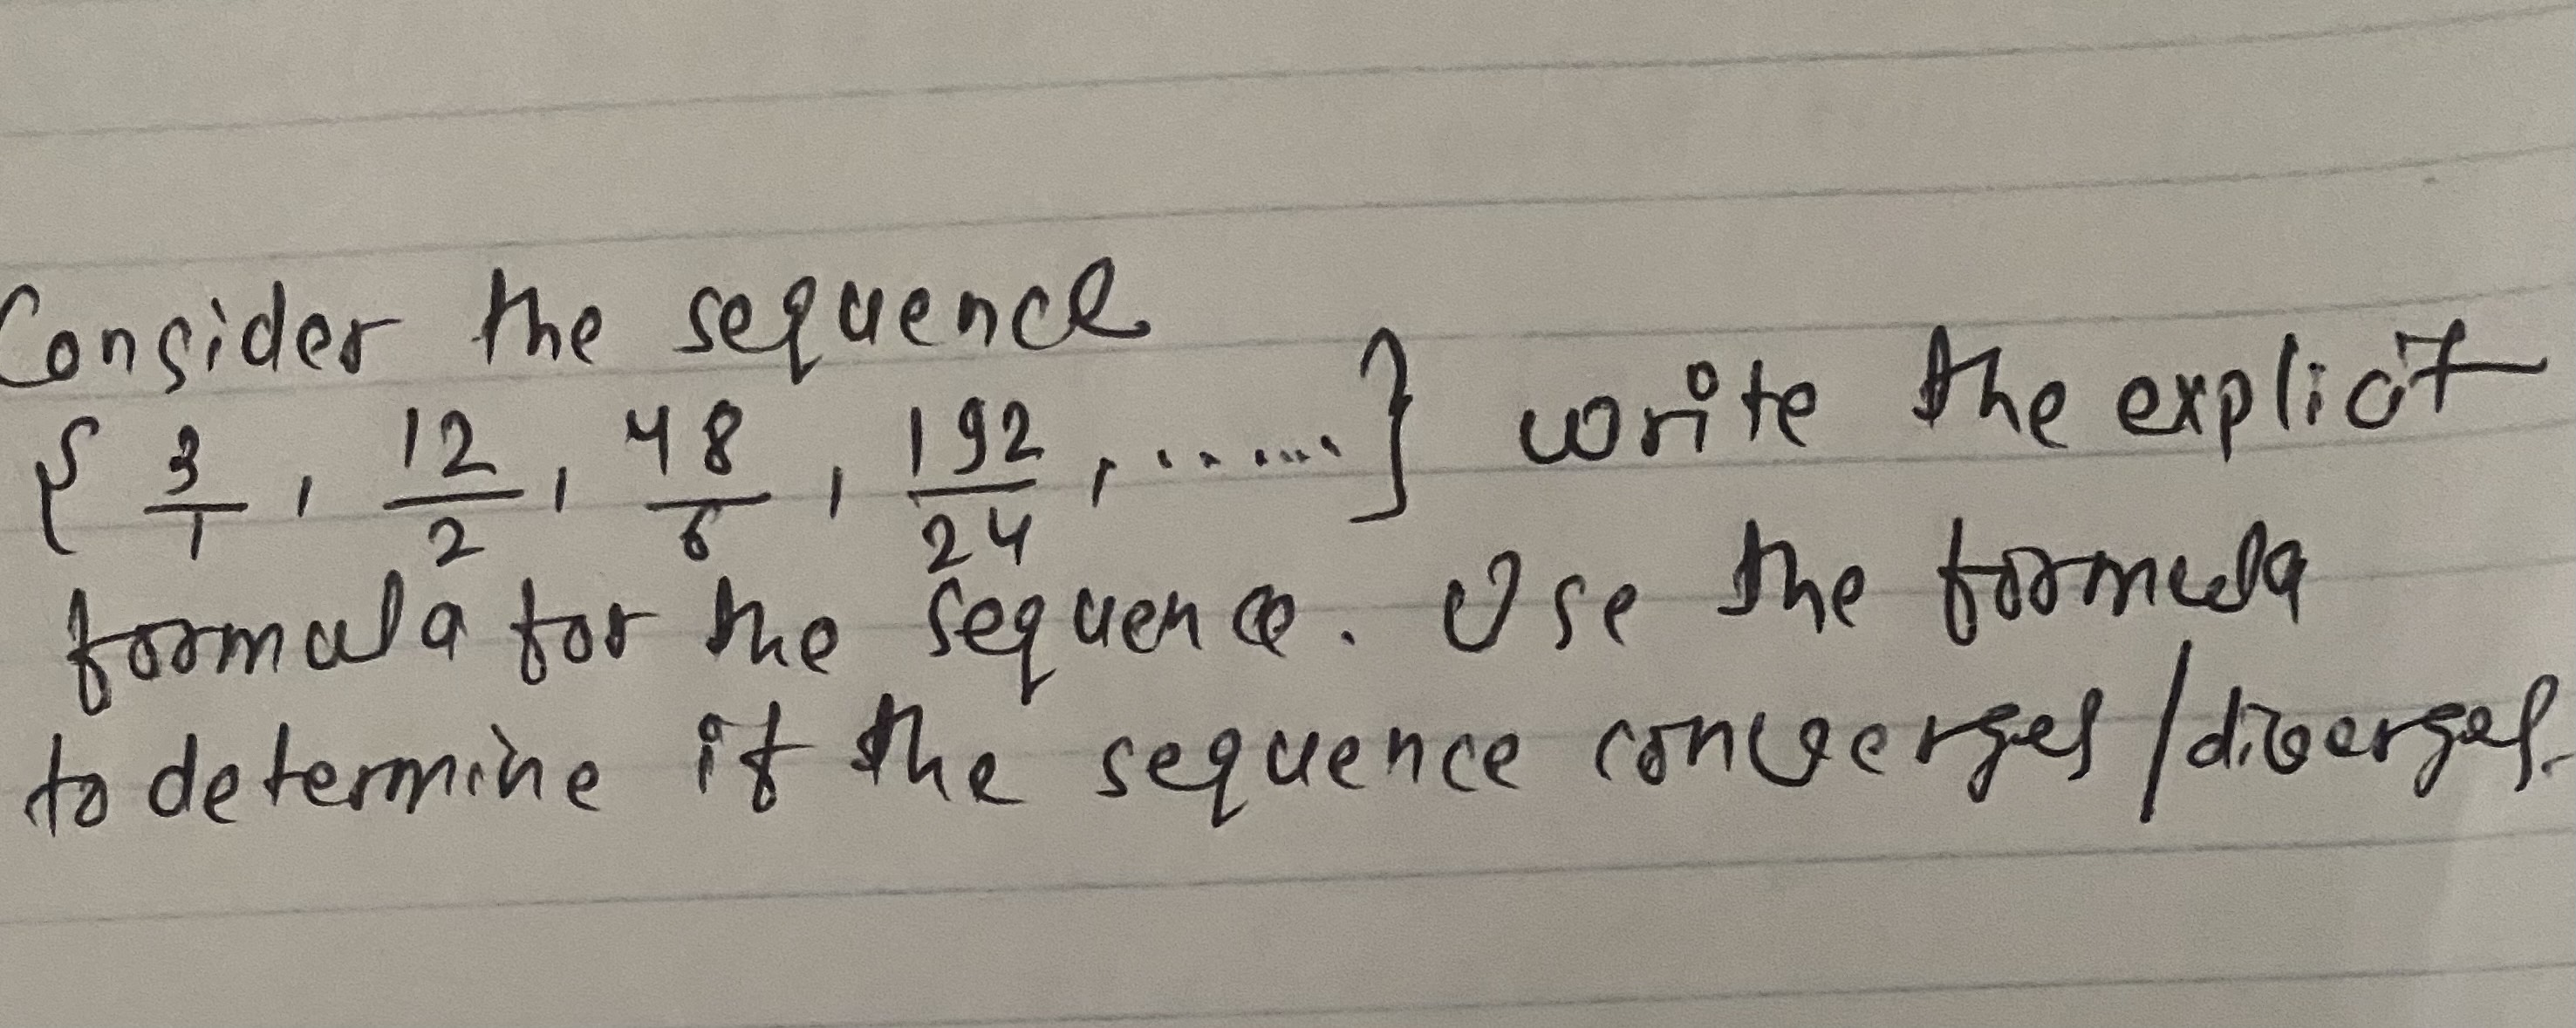 Consider the sequence
{ 3/1, 12/2, 48/6, 192/24, ....... } write the explicit
formula for the sequence. Use the formula
to determine if the sequence converges/diverges.